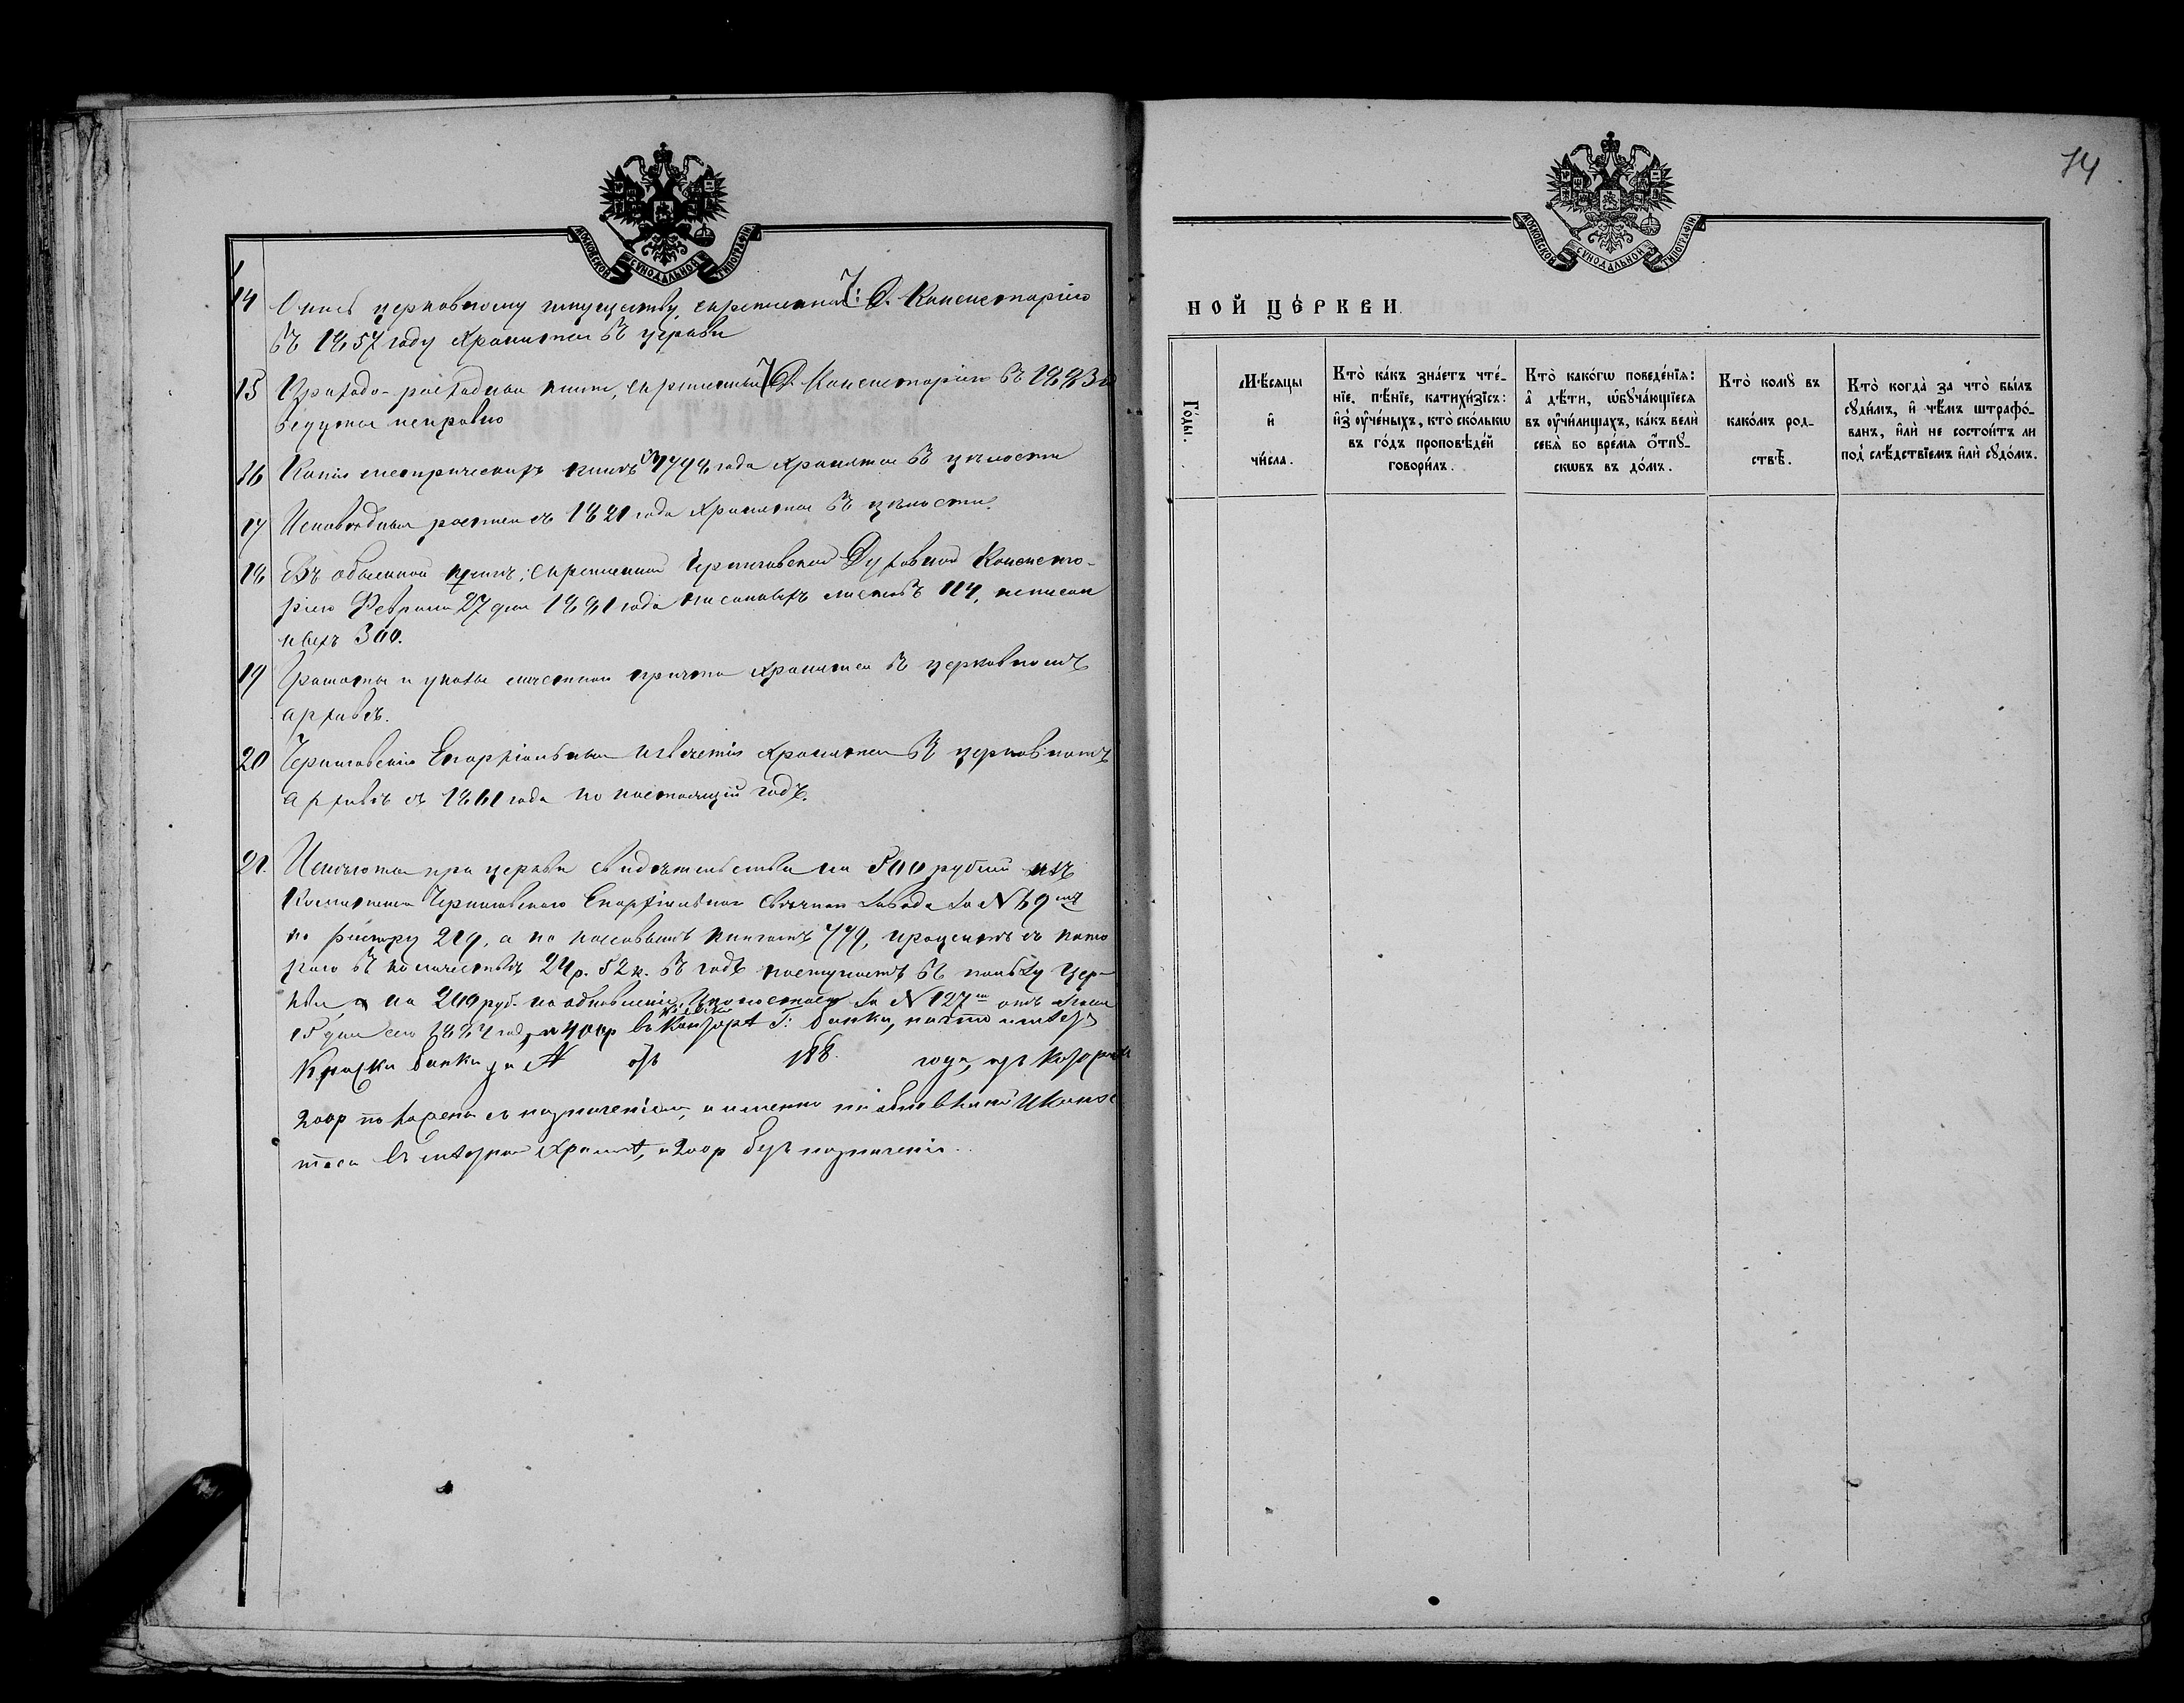 МОСКОВСКОЙ СУНОДАЛЬНОЙ ТИПОГРАФІИ
14 Опись церковному имуществу, скрепленная Ч: Д. Консисторіею
въ 1857 году хранится въ церкви
15 Приходо-расходныя книги, скрепленныя Ч. Д. Консисторіею въ 1883 г.
ведутся исправно
16 Копіи метрическихъ книгъ съ года хранятся въ цѣлости
17 Исповѣдныя росписи съ 1821 года хранятся въ цѣлости.
18 Въ обыскной книгѣ, скрепленной Черниговскою Духовною Консисто-
ріею Февраля 27 дня 1881 года писанныхъ листовъ 114, неписан
ныхъ 300.
19 Грамоты и указы хранятся въ церковномъ
архивѣ.
20 Черниговскія Епархіальныя извѣстія хранятся въ церковномъ
архивѣ съ 1861 года по настоящій годъ.
21. Имѣются при церкви свидѣтельства на 500 рублей изъ
Комитета Черниговскаго Епархіальнаго свѣчнаго завода за № 69мъ
по реестру 219, а по кассовымъ книгамъ 779, процентъ съ кото
раго въ количествѣ 24 р. 52 к. въ годъ поступаетъ въ пользу Цер-
кви, на 200 руб. на обновленіе Иконостаса за № 127м отъ
15 дня сего 1887 года, и 400 р въ Т: банка,
Книжка банка за № отъ 188 года, изъ которыхъ
200 р положены съ назначеніемъ, а именно на обновленіе Иконос
таса въ Храмѣ, а 200 р безъ назначенія.
74
МОСКОВСКОЙ СУНОДАЛЬНОЙ ТИПОГРАФІИ
НОЙ ЦЕ́РКВИ.
Го́ды.
Мѣ́сяцы
и҆
чи́сла.
Кто̀ ка́къ зна́етъ чте́-
нїе, пѣ́нїе, катихи́зїсъ:
и҆з̾ ᲂу҆че́ныхъ, кто̀ ско́лькѡ
въ го́дъ проповѣ́дей
говори́лъ.
Кто̀ како́гѡ поведе́нїѧ:
а҆ дѣ́ти, ѡ҆бꙋча́ющїесѧ
въ ᲂу҆чи́лищахъ, ка́къ велѝ
себѧ̀ во вре́мѧ ѿпꙋ-
скѡвъ въ до́мъ.
Кто̀ комꙋ̀ въ
како́мъ род-
ствѣ̀.
Кто̀ когда̀ за что̀ бы́лъ
сꙋди́мъ, и҆ чѣ́мъ штрафо́-
ванъ, и҆лѝ не состои́тъ ли
под̾ слѣ́дствїемъ и҆лѝ сꙋдо́мъ.